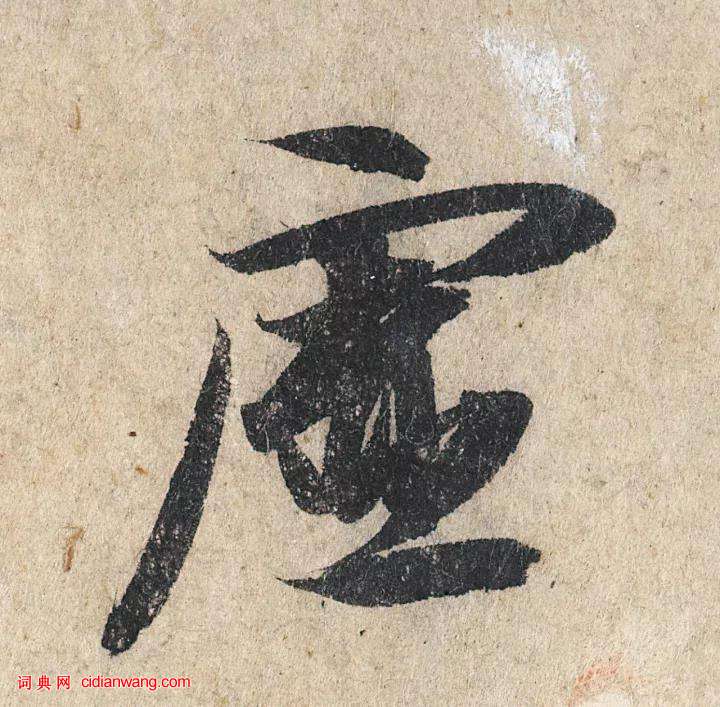 虚
词典网 cidianwang.com